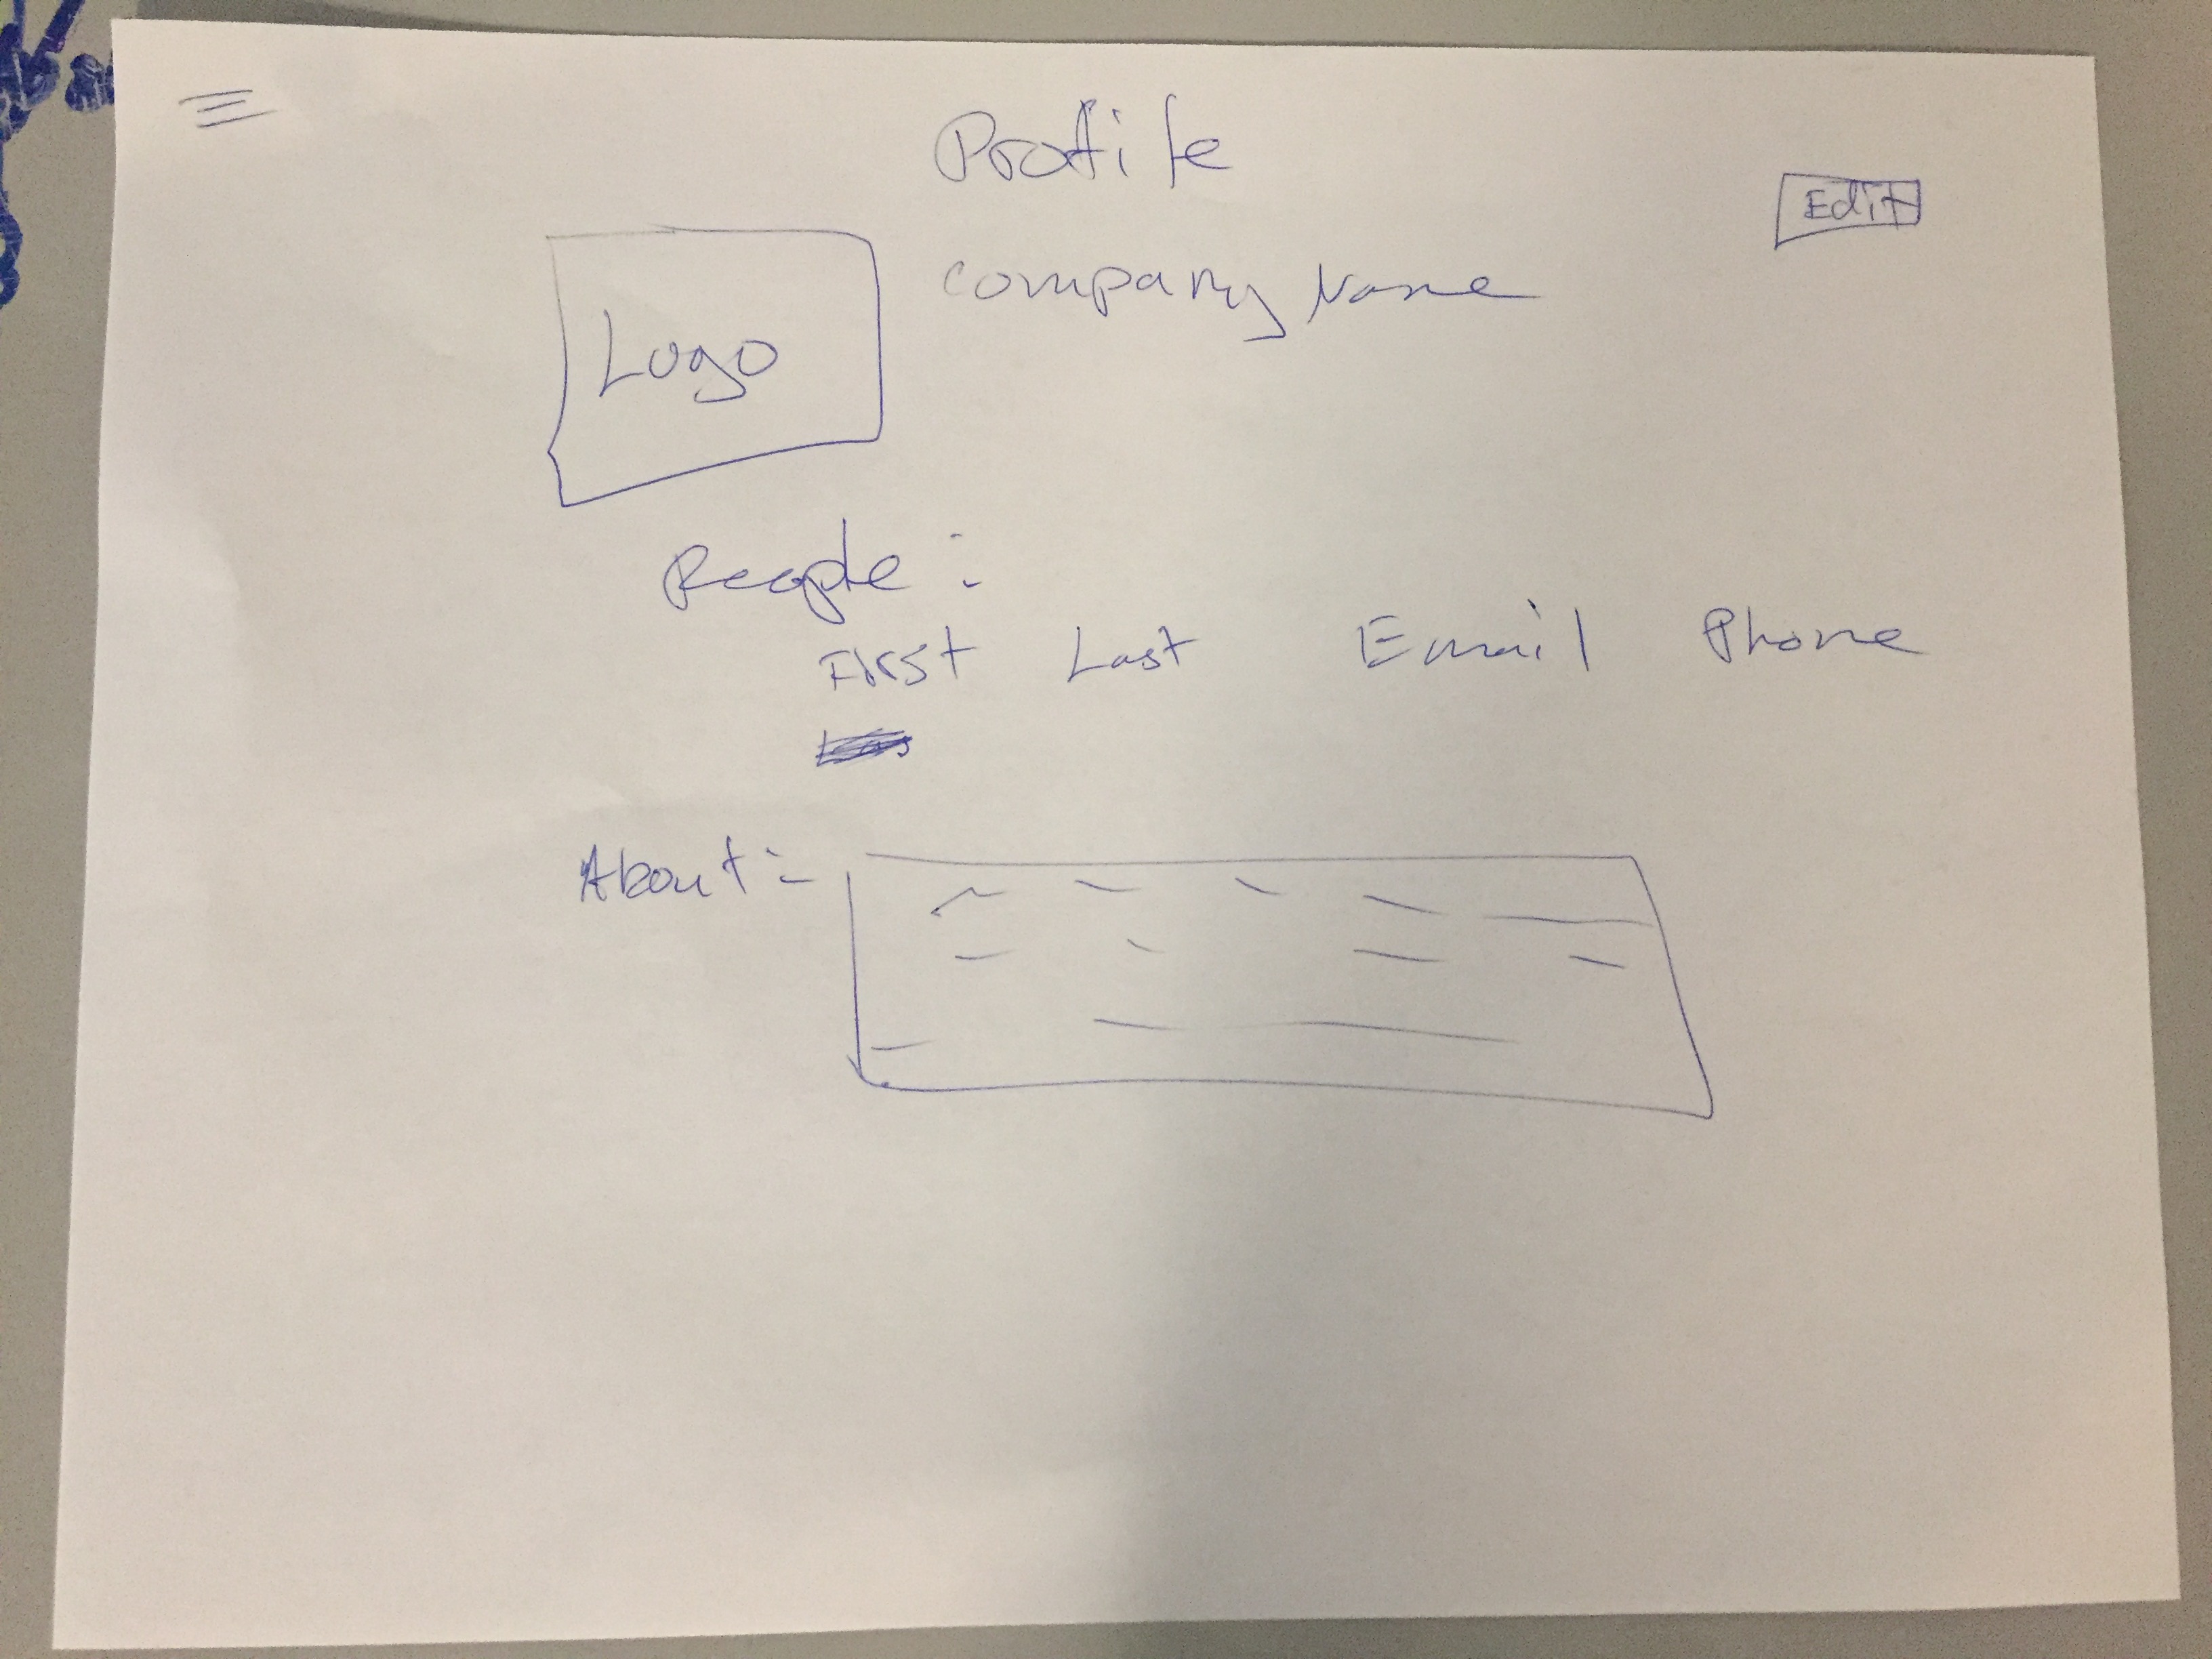 Profile
Edit
Logo
company Name
People:
First Last Email Phone
About: